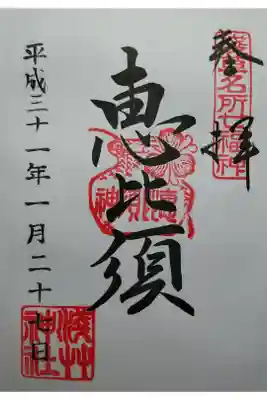 浅草名所七福神
奉拝
恵比須
平成三十一年一月二十七日
浅草神社